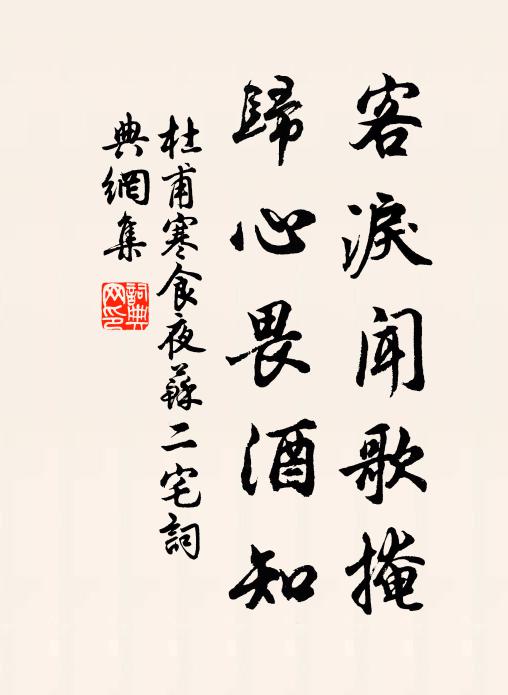 客淚聞歌掩
歸心畏酒知
杜甫寒食夜蘇二宅詞
典網集
詞典網印